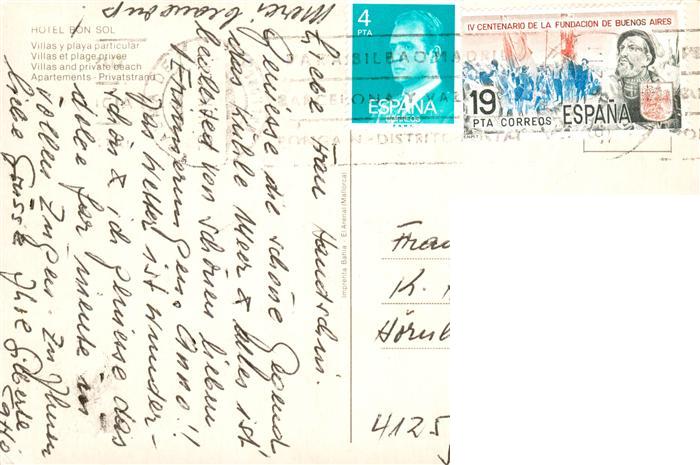 HOTEL BON SOL
Villas y playa particular
Villas et plage privée
Villas and private beach
Apartements - Privatstrand
4
PTA
ESPAÑA
CORREOS
IV CENTENARIO DE LA FUNDACION DE BUENOS AIRES
19
PTA CORREOS
ESPAÑA
Merci beaucoup
Liebe Frau
Geniesse die schöne Gegend
das kühle Meer & alles ist
von schönen lieben
Erinnerungen. Anno!!
Das Wetter ist wunder-
& ich geniesse das
dolce far niente in
vollen Zügen. Zu Ihnen
liebe Grüsse Ihre
Imprenta Bahia - El Arenal (Mallorca)
Frau
K.
4125